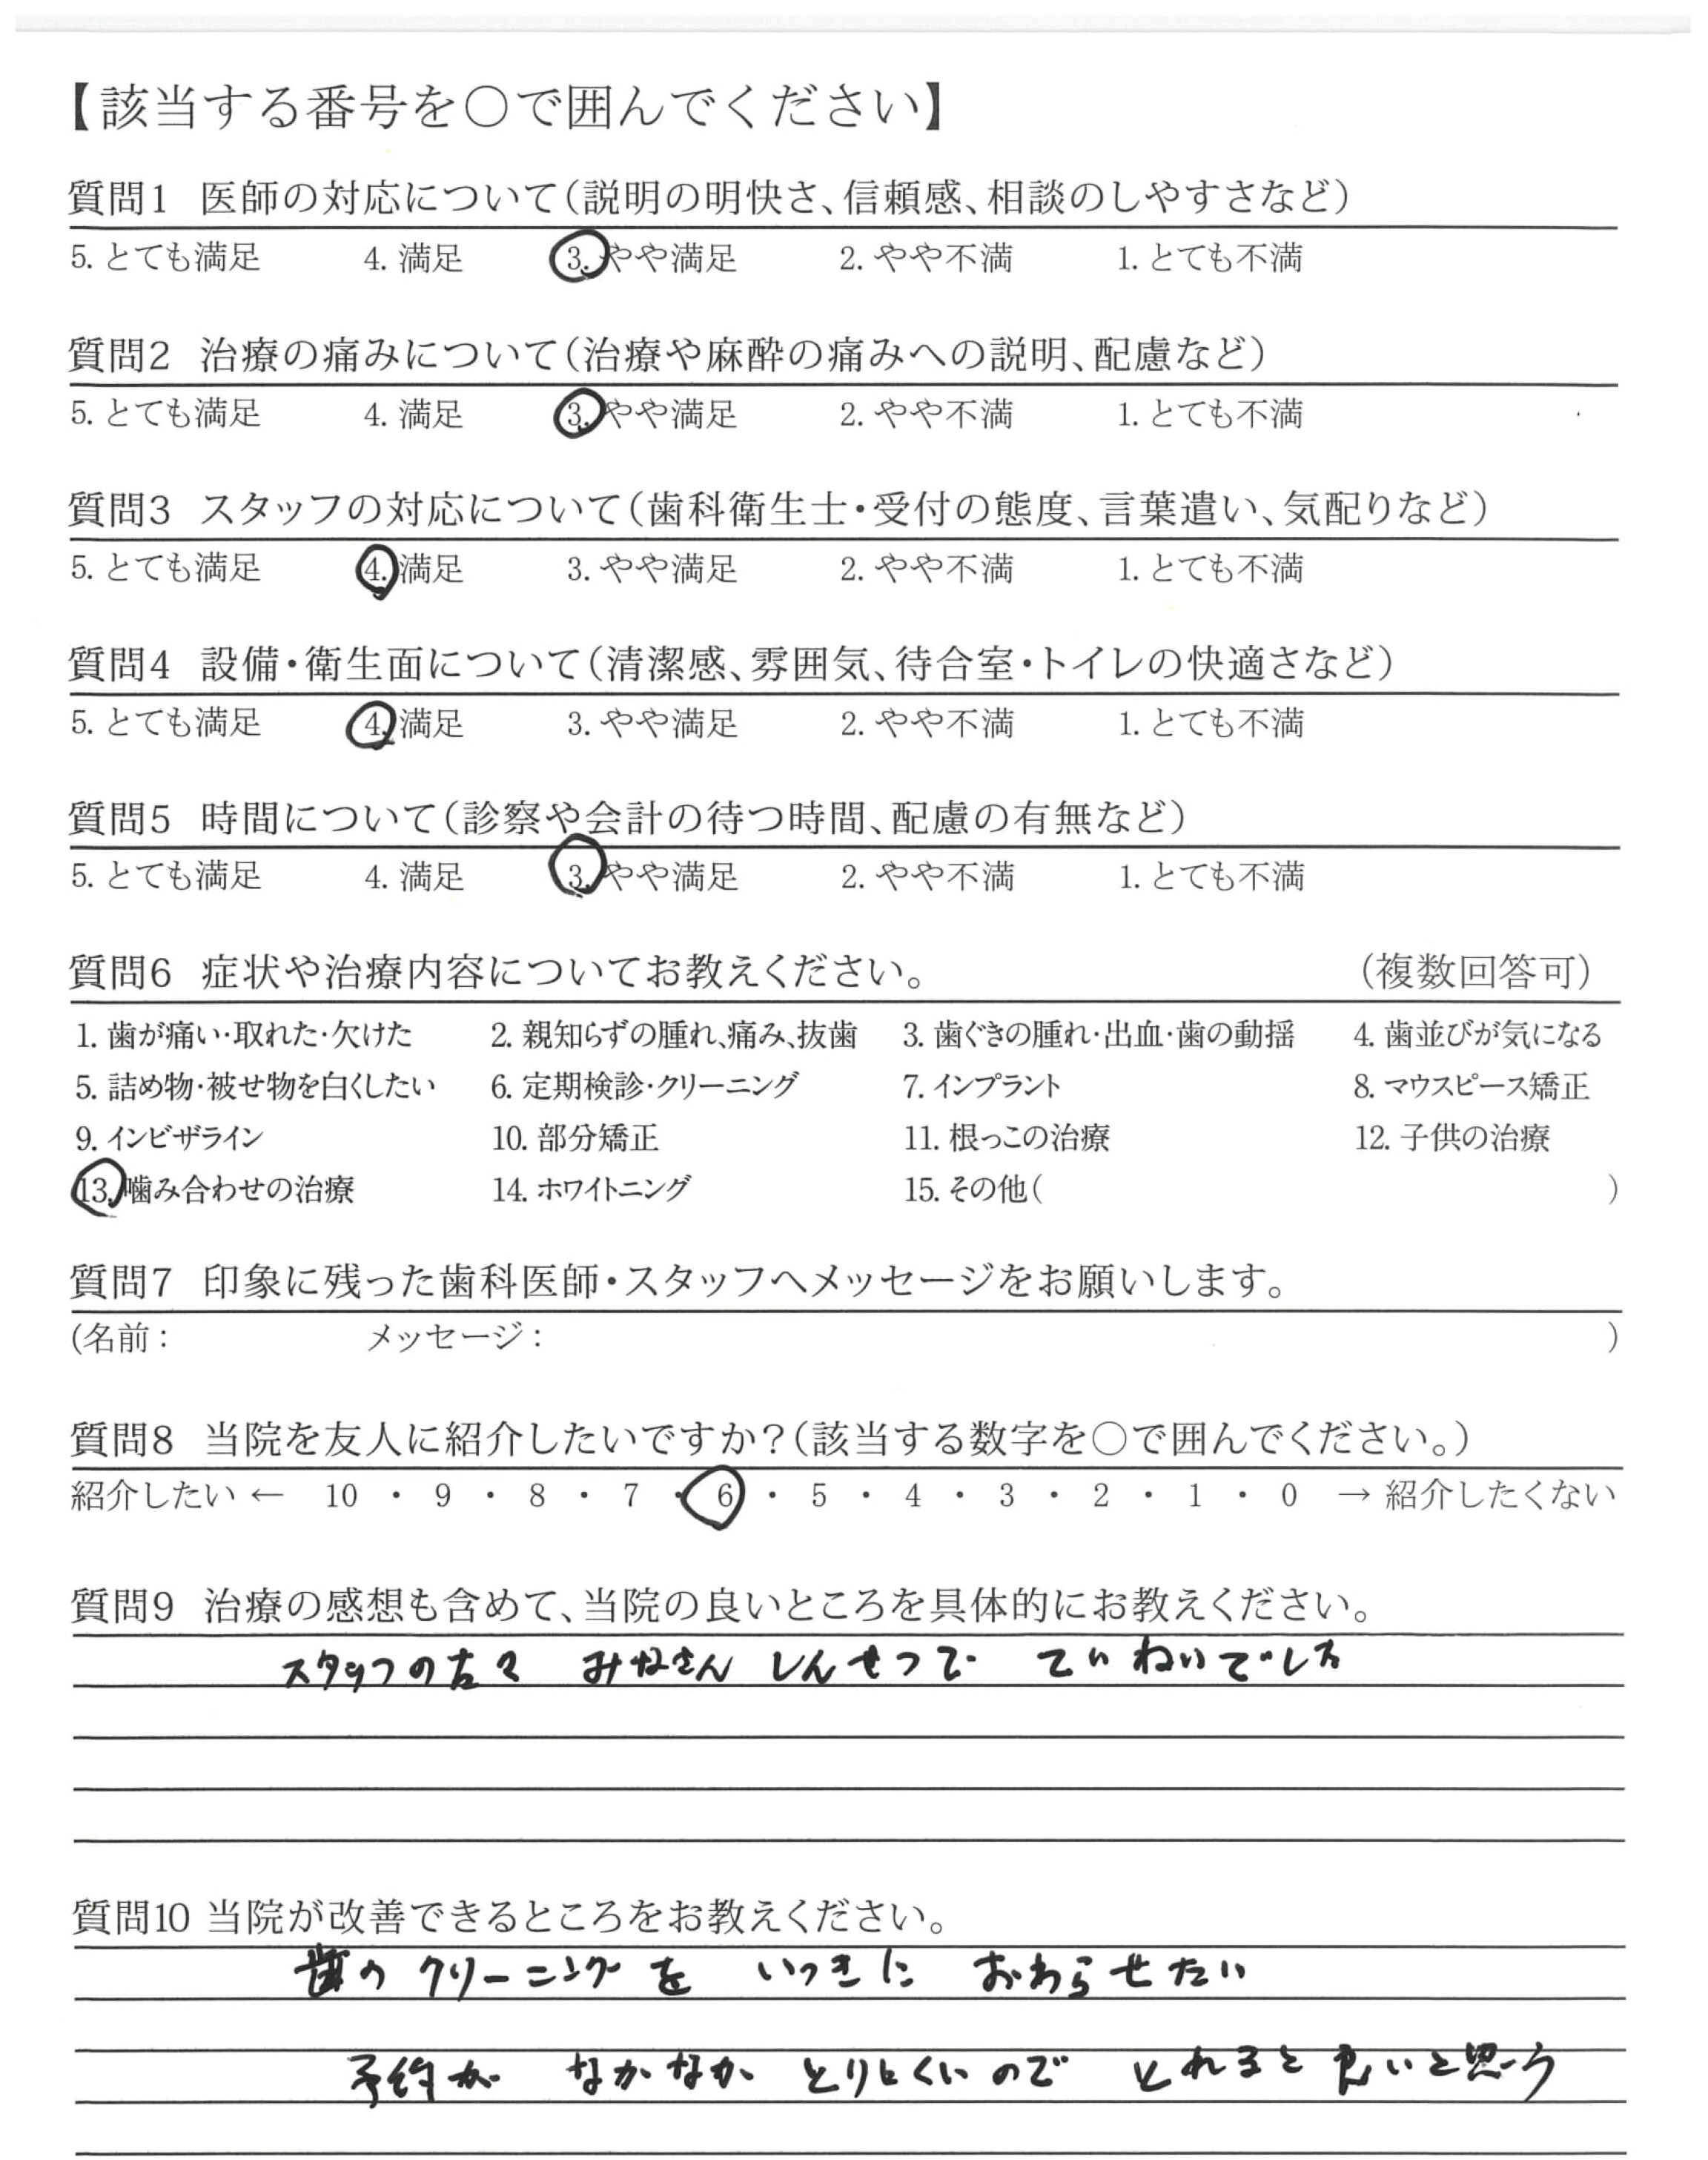 【該当する番号を〇で囲んでください】
質問1 医師の対応について（説明の明快さ、信頼感、相談のしやすさなど）
5. とても満足 4. 満足 3. やや満足 2. やや不満 1. とても不満
質問2 治療の痛みについて（治療や麻酔の痛みへの説明、配慮など）
5. とても満足 4. 満足 3. やや満足 2. やや不満 1. とても不満
質問3 スタッフの対応について（歯科衛生士・受付の態度、言葉遣い、気配りなど）
5. とても満足 4. 満足 3. やや満足 2. やや不満 1. とても不満
質問4 設備・衛生面について（清潔感、雰囲気、待合室・トイレの快適さなど）
5. とても満足 4. 満足 3. やや満足 2. やや不満 1. とても不満
質問5 時間について（診察や会計の待つ時間、配慮の有無など）
5. とても満足 4. 満足 3. やや満足 2. やや不満 1. とても不満
質問6 症状や治療内容についてお教えください。 （複数回答可）
1. 歯が痛い・取れた・欠けた 2. 親知らずの腫れ、痛み、抜歯 3. 歯ぐきの腫れ・出血・歯の動揺 4. 歯並びが気になる
5. 詰め物・被せ物を白くしたい 6. 定期検診・クリーニング 7. インプラント 8. マウスピース矯正
9. インビザライン 10. 部分矯正 11. 根っこの治療 12. 子供の治療
13. 噛み合わせの治療 14. ホワイトニング 15. その他（ ）
質問7 印象に残った歯科医師・スタッフへメッセージをお願いします。
(名前： メッセージ： )
質問8 当院を友人に紹介したいですか？（該当する数字を〇で囲んでください。）
紹介したい ← 10 ・ 9 ・ 8 ・ 7 ・ 6 ・ 5 ・ 4 ・ 3 ・ 2 ・ 1 ・ 0 → 紹介したくない
質問9 治療の感想も含めて、当院の良いところを具体的にお教えください。
スタッフの方々 みなさん しんせつで ていねいでした
質問10 当院が改善できるところをお教えください。
歯のクリーニングを いっきに おわらせたい
予約が なかなか とりにくいので とれると良いと思う